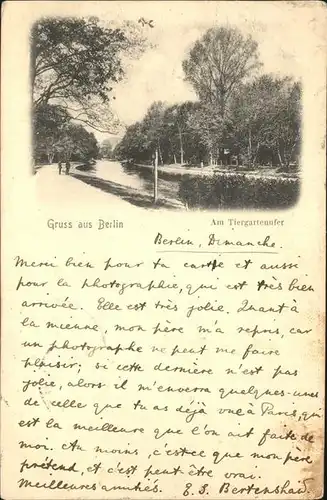 Gruss aus Berlin
Am Tiergartenufer
Berlin, Dimanche.
Merci bien pour ta carte et aussi
pour la photographie, qui est très bien
arrivée. Elle est très jolie. Quant à
la mienne, mon père m'a repris, car
un photographe ne peut me faire
plaisir; si cette dernière n'est pas
jolie, alors il m'enverra quelques-unes
de celle que tu as déjà vue à Paris, qui
est la meilleure que l'on ait faite de
moi. Au moins, c'est ce que mon père
prétend, et c'est peut être vrai.
Meilleures amitiés. E. S.